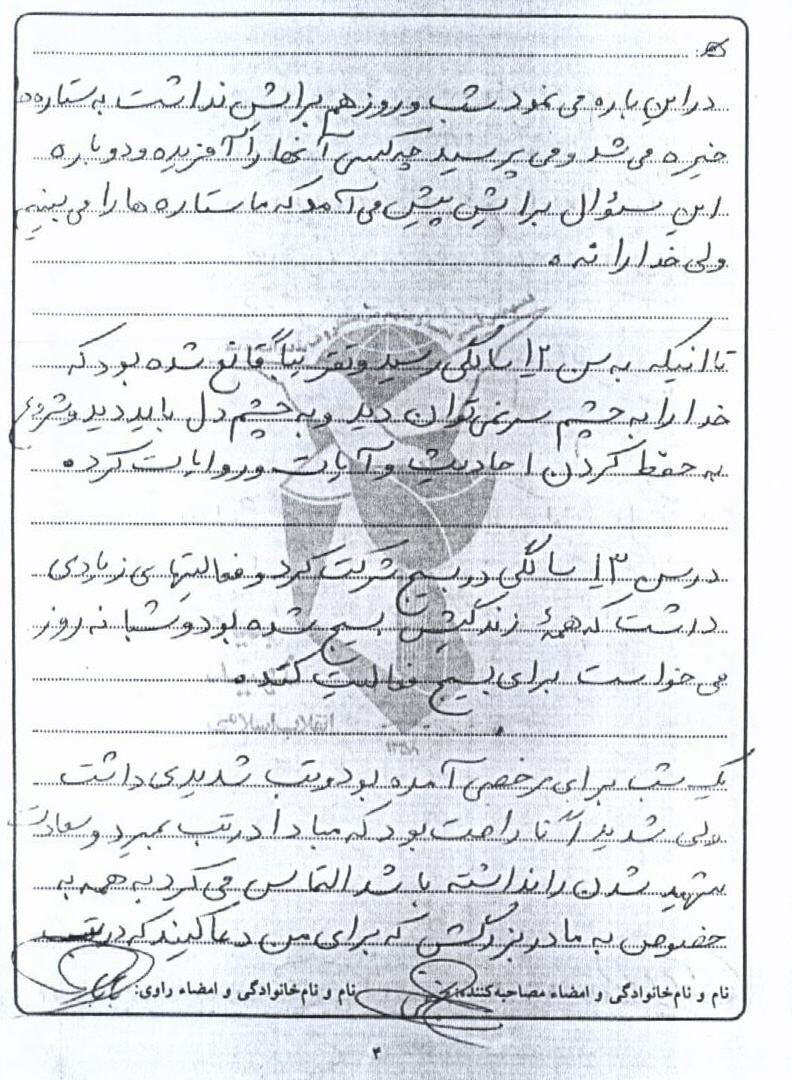 در این باره می نمود شب و روز هم برایش نداشت به ستاره ها
خیره می شد و می پرسید چه کسی آنها را آفریده و دوباره
این سئوال برایش پیش می آمد که ما ستاره ها را می بینیم
ولی خدا را نه .
تا اینکه به سن ۱۲ سالگی رسید و تقریباً قانع شده بود که
خدا را به چشم سر نمی توان دید و به چشم دل باید دید و شروع
به حفظ کردن احادیث و آیات و روایات کرد .
در سن ۱۳ سالگی در بسیج شرکت کرد و فعالیتهای زیادی
داشت که همهٔ زندگیش بسیج شده بود و شبانه روز
می خواست برای بسیج فعالیت کند .
یک شب برای مرخصی آمده بود و تب شدیدی داشت
ولی شدیداً ناراحت بود که مبادا در تب بمیرد و سعادت
شهید شدن را نداشته باشد التماس می کرد به همه به
خصوص به مادربزرگش که برای من دعا کنید که در تب
نام و نام خانوادگی و امضاء مصاحبه کننده: نام و نام خانوادگی و امضاء راوی:
۴